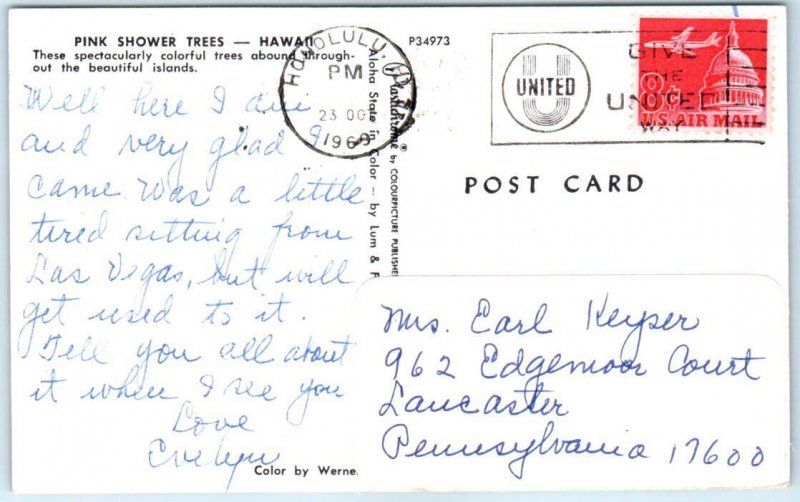 PINK SHOWER TREES — HAWAII
These spectacularly colorful trees abound through-
out the beautiful islands.
Well here I am
and very glad I
came was a little
tired sitting from
Las Vegas, but will
get used to it.
Tell you all about
it when I see you
Love
Evelyn
Color by Werne
P34973
Aloha State in Color — by Lum &
by COLOURPICTURE PUBLISHE
HONOLULU, HI
PM
23 OC
1969
UNITED
GIVE
THE
UNITED
WAY
8¢
U.S. AIR MAIL
POST CARD
Mrs. Earl Keyser
962 Edgemoor Court
Lancaster
Pennsylvania 17600